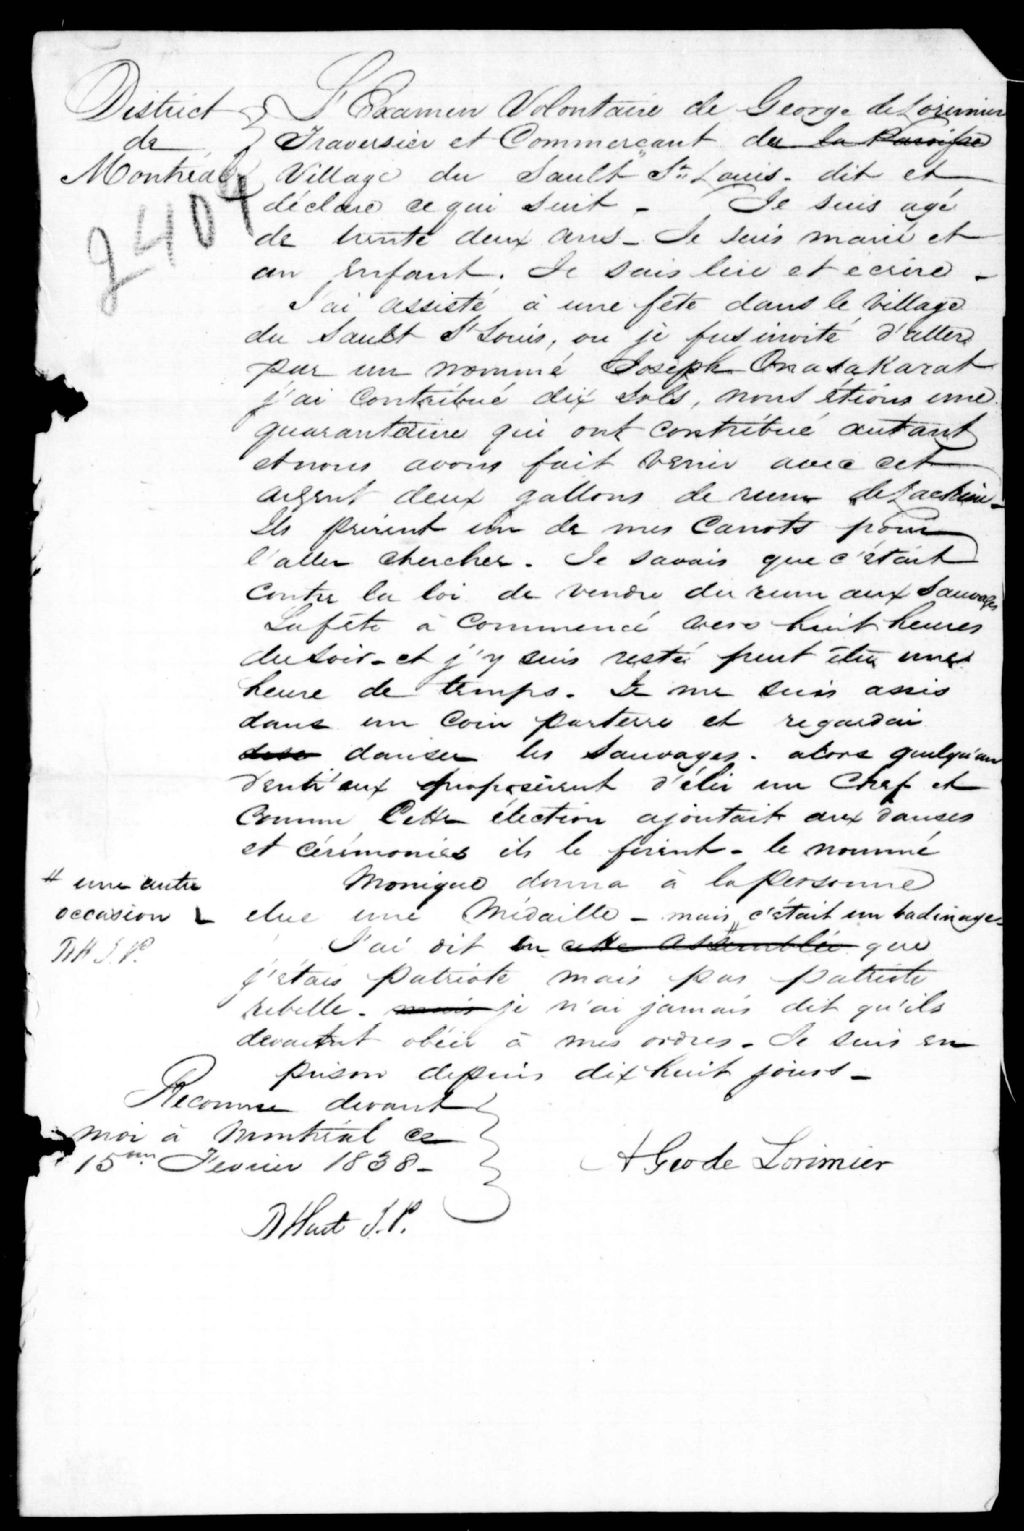 District
de
Montréal
2404
L'Examen Volontaire de George de Lorimier
Traversier et Commerçant du la Paroisse
Village du Sault St Louis. dit et
déclare ce qui suit - Je suis agé
de trente deux ans - Je suis marié et
un Enfant. Je sais lire et ecrire -
J'ai assisté à une fête dans le village
du Sault St Louis, ou je fus invité d'aller
par un nommé Joseph Onasakarat
j'ai contribué dix sols, nous étions une
quarantaine qui ont contribué autant
et nous avons fait venir avec cet
argent deux gallons de rum de Lachine -
Ils prirent un de mes Canots pour
l'aller chercher. Je savais que c'était
contre la loi de vendre du rum aux Sauvages
La fête à commencé vers huit heures
du soir - et j'y suis resté peut être une
heure de temps. Je me suis assis
dans un Coin parterre et regardai
danser les Sauvages. alors quelqu'un
d'entr'eux proposèrent d'élir un Chef et
comme cette élection ajoutait aux danses
et cérémonies ils le firent - le nommé
Monique donna à la personne
elue une Médaille - mais c'était un badinage -
# une autre
occasion
BH J.P.
J'ai dit en cette assemblée que
j'étais patriote mais pas patriote
rebelle. mais je n'ai jamais dit qu'ils
devaient obéir à mes ordres - Je suis en
prison depuis dix huit jours -
Reconnu devant
moi à Montréal ce
15me Fevrier 1838 -
Geo de Lorimier
B Hart J.P.